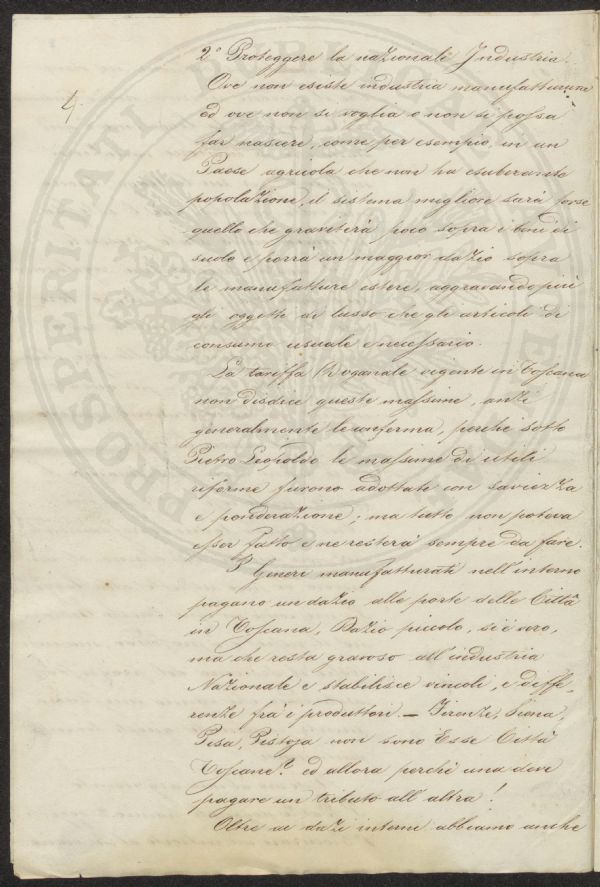 2° Proteggere la nazionale Industria.
Ove non esiste industria manufatturiera
ed ove non si voglia o non si possa
far nascere, come per esempio, in un
4
Paese agricola che non ha esuberante
popolazione, il sistema migliore sarà forse
quello che graviterà poco sopra i beni di
suolo e porrà un maggior dazio sopra
le manufatture estere, aggravando più
gli oggetti di lusso che gli articoli di
consumo usuale e necessario.
La tariffa Doganale vigente in Toscana
non disdice queste massime, anzi
generalmente le conferma, perchè sotto
Pietro Leopoldo le massime di utili
riforme furono adottate con saviezza
e ponderazione; ma tutto non poteva
esser fatto e ne resterà sempre da fare.
I Generi manufatturati nell'interno
pagano un dazio alle porte delle Città
in Toscana, Dazio piccolo, si è vero,
ma che resta gravoso all'industria
Nazionale e stabilisce vincoli, e diffe-
renze frà i produttori. — Firenze, Siena,
Pisa, Pistoja non sono Esse Città
Toscane? ed allora perchè una deve
pagare un tributo all'altra!
Oltre ai dazi interni abbiamo anche
PROSPERITATI PUBLICAE